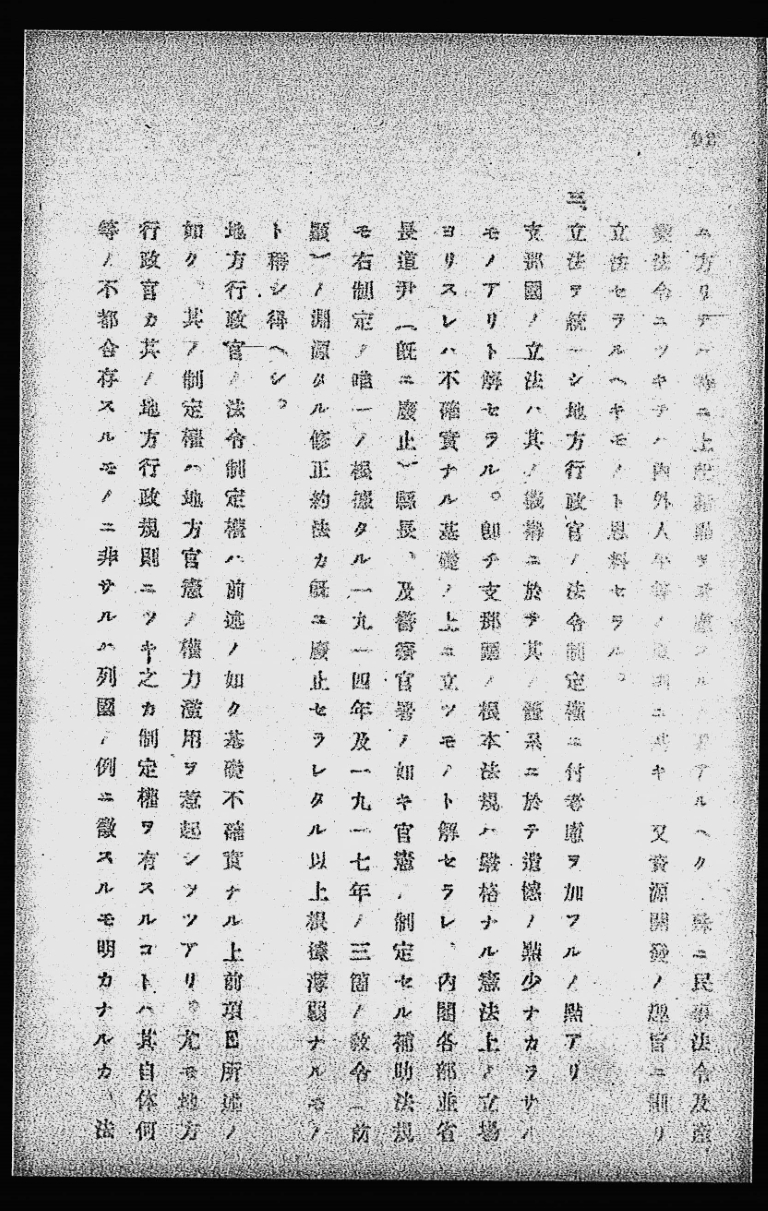 ニ方リテハ等ニ上記ヲスルノアルヘク 殊ニ民事法令及産
業法令ニツキテハ内外人等ノニキ 又資源開發ノ趣旨ニ則リ
立法セラルヘキモノト思料セラル。
三、立法ヲ統一シ地方行政官ノ法令制定權ニ付考慮ヲ加フルノ點アリ
支那國ノ立法ハ其ノ機構ニ於テ其ノ體系ニ於テ遺憾ノ點少ナカラサル
モノアリト解セラル。卽チ支那國ノ根本法規ハ嚴格ナル憲法上ノ立場
ヨリスレハ不確實ナル基礎ノ上ニ立ツモノト解セラレ、內閣各部並省
長道尹(旣ニ廢止)縣長、及警察官署ノ如キ官憲ノ制定セル補助法規
モ右制定ノ唯一ノ根據タル一九一四年及一九一七年ノ三箇ノ敎令(前
顯)ノ淵源タル修正約法カ旣ニ廢止セラレタル以上根據薄弱ナルモノ
ト稱シ得ヘシ。
地方行政官ノ法令制定權ハ前述ノ如ク基礎不確實ナル上前項E所述ノ
如ク、其ノ制定權ハ地方官憲ノ權力濫用ヲ惹起シツツアリ。尤モ地方
行政官カ其ノ地方行政規則ニツキ之カ制定權ヲ有スルコトハ其自体何
等ノ不都合存スルモノニ非サルハ列國ノ例ニ徵スルモ明カナルカ、法